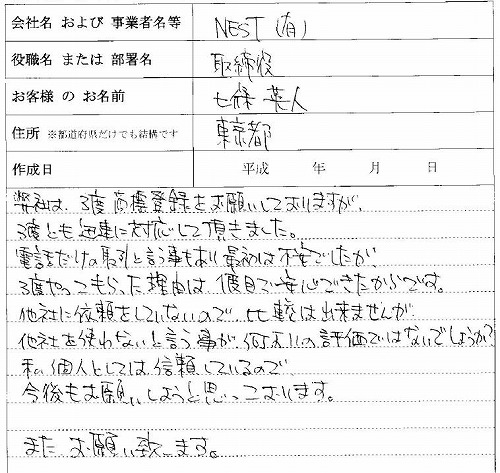 会社名 および 事業者名等 NEST(有)
役職名 または 部署名 取締役
お客様 の お名前 七條 英人
住所 ※都道府県だけでも結構です 東京都
作成日 平成 年 月 日
弊社は、3度商標登録をお願いしておりますが、
3度とも迅速に対応して頂きました。
電話だけの取引と言う事もあり最初は不安でしたが
3度やってもらった理由は1度目で安心できたからです。
他社に依頼をしていないので比較は出来ませんが
他社を使わないと言う事が何よりの評価ではないでしょうか?
私個人としては信頼しているので、
今後もお願いしようと思っております。
また お願い致します。